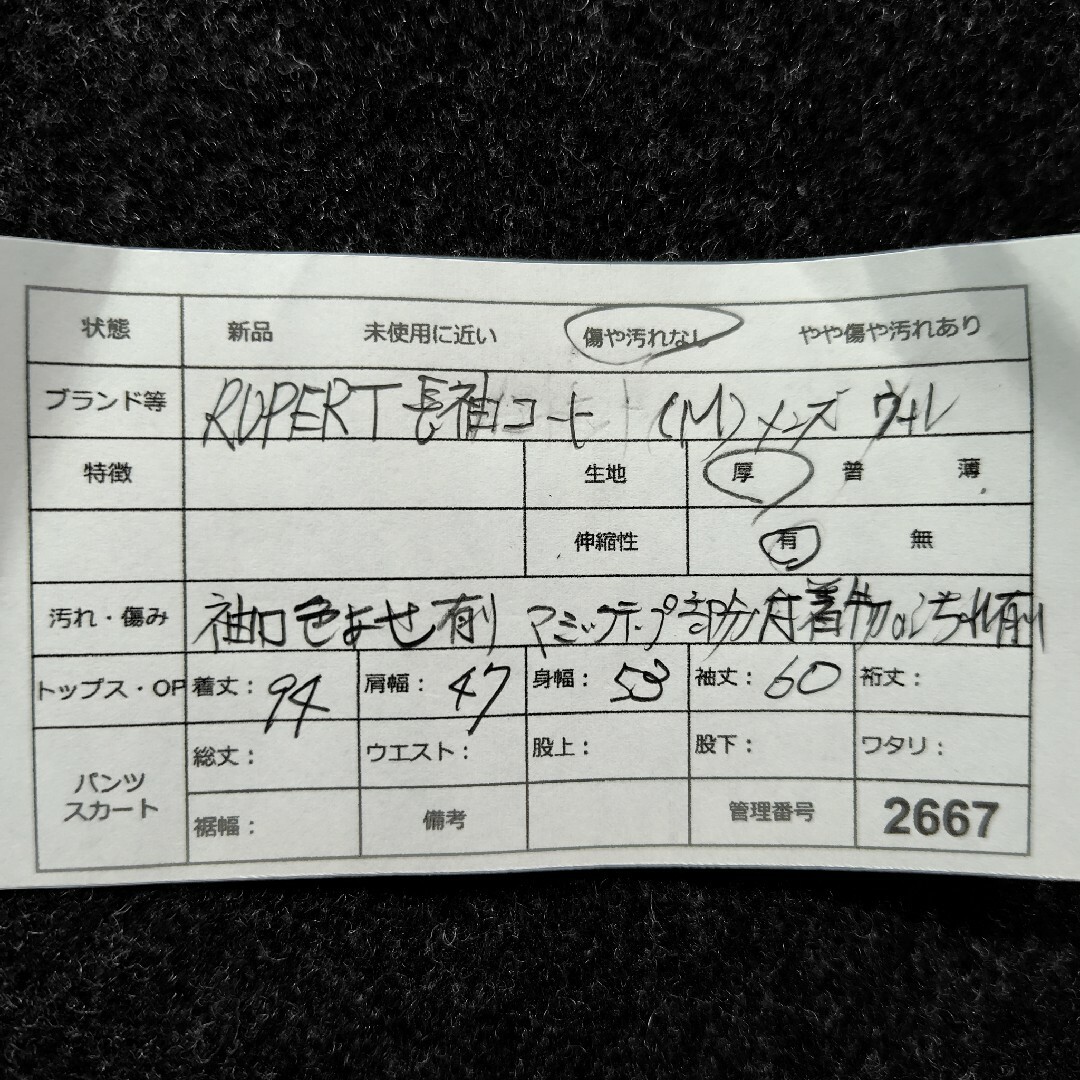 状態 新品 未使用に近い 傷や汚れなし やや傷や汚れあり
ブランド等 RUPERT 長袖コート (M) メンズ ウール
特徴 生地 厚 普 薄
伸縮性 有 無
汚れ・傷み 袖口色あせ有り マジックテープ部分付着物 汚れ有り
トップス・OP 着丈: 94 肩幅: 47 身幅: 53 袖丈: 60 裄丈:
パンツ スカート 総丈: ウエスト: 股上: 股下: ワタリ:
裾幅: 備考 管理番号 2667